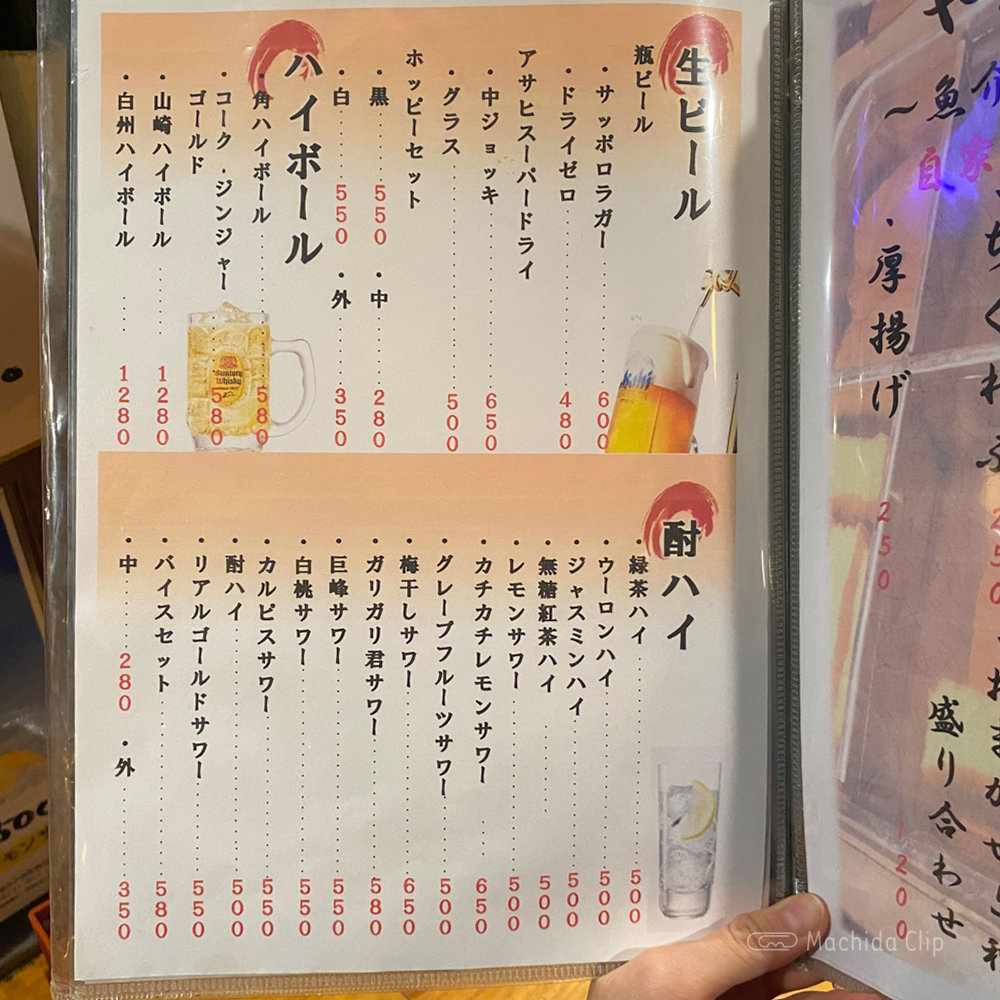 生ビール
瓶ビール
・サッポロラガー 600
・ドライゼロ 480
アサヒスーパードライ
・中ジョッキ 650
・グラス 500
ホッピーセット
・黒 550 ・中 280
・白 550 ・外 350
ハイボール
・角ハイボール 580
・コーク・ジンジャー 580
ゴールド
・山崎ハイボール 1280
・白州ハイボール 1280
Suntory
Whisky
酎ハイ
・緑茶ハイ 500
・ウーロンハイ 500
・ジャスミンハイ 500
・無糖紅茶ハイ 500
・レモンサワー 500
・カチカチレモンサワー 650
・グレープフルーツサワー 500
・梅干しサワー 650
・ガリガリ君サワー 580
・巨峰サワー 550
・白桃サワー 550
・カルピスサワー 550
・酎ハイ 500
・リアルゴールドサワー 550
・バイスセット 580
・中 280 ・外 350
自家
・厚揚げ 250
盛り合わせ
1200
Machida Clip